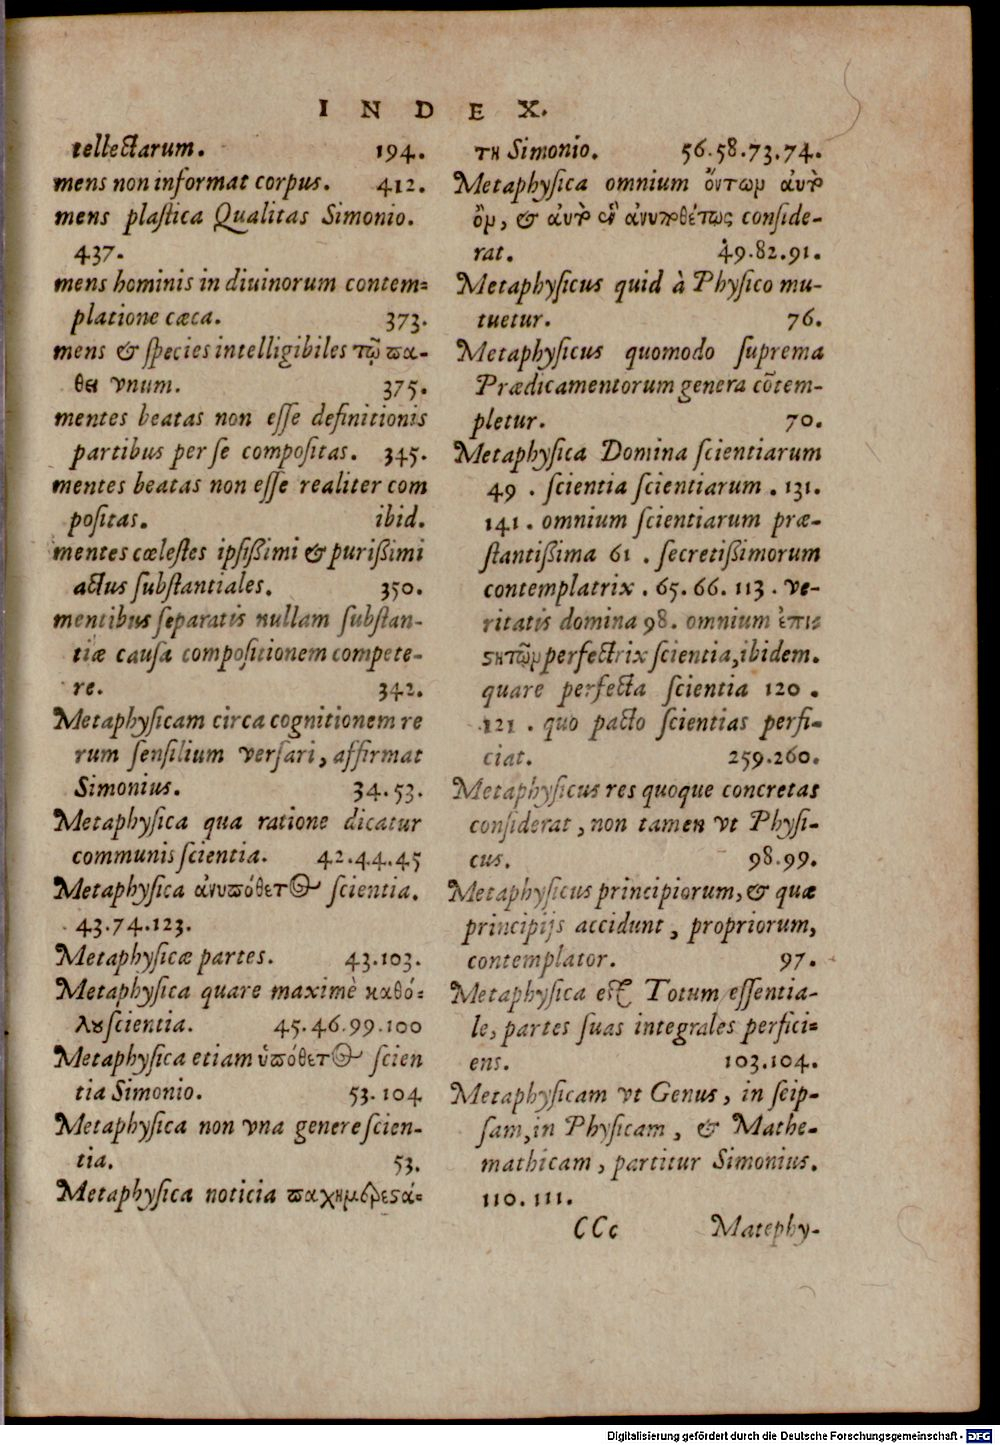 INDEX.
tellectarum. 194.
mens non informat corpus. 412.
mens plastica Qualitas Simonio.
437.
mens hominis in diuinorum contem=
platione cæca. 373.
mens & species intelligibiles τῷ πα-
θει vnum. 375.
mentes beatas non esse definitionis
partibus per se compositas. 345.
mentes beatas non esse realiter com
positas. ibid.
mentes cælestes ipsißimi & purißimi
actus substantiales. 350.
mentibus separatis nullam substan-
tiæ causa compositionem compete-
re. 342.
Metaphysicam circa cognitionem re
rum sensilium versari, affirmat
Simonius. 34.53.
Metaphysica qua ratione dicatur
communis scientia. 42.44.45
Metaphysica ἀνυπόθετος scientia.
43.74.123.
Metaphysicæ partes. 43.103.
Metaphysica quare maximè καθό=
λου scientia. 45.46.99.100
Metaphysica etiam ὑπόθετος scien
tia Simonio. 53.104
Metaphysica non vna genere scien-
tia. 53.
Metaphysica noticia
τη Simonio. 56.58.73.74.
Metaphysica omnium ὄντων αὐτὸ
ὂν, & αὐτὸ conside-
rat. 49.82.91.
Metaphysicus quid à Physico mu-
tuetur. 76.
Metaphysicus quomodo suprema
Prædicamentorum genera cõtem-
pletur. 70.
Metaphysica Domina scientiarum
49 . scientia scientiarum . 131.
141 . omnium scientiarum præ-
stantißima 61 . secretißimorum
contemplatrix . 65. 66. 113 . ve-
ritatis domina 98. omnium ἐπι=
ϛητῶν perfectrix scientia, ibidem.
quare perfecta scientia 120 .
121 . quo pacto scientias perfi-
ciat. 259.260.
Metaphysicus res quoque concretas
considerat, non tamen vt Physi-
cus. 98.99.
Metaphysicus principiorum, & quæ
principijs accidunt, propriorum,
contemplator. 97.
Metaphysica est Totum essentia-
le, partes suas integrales perfici=
ens. 103.104.
Metaphysicam vt Genus, in seip-
sam, in Physicam, & Mathe-
mathicam, partitur Simonius.
110. 111.
CCc Matephy-
Digitalisierung gefördert durch die Deutsche Forschungsgemeinschaft - DFG